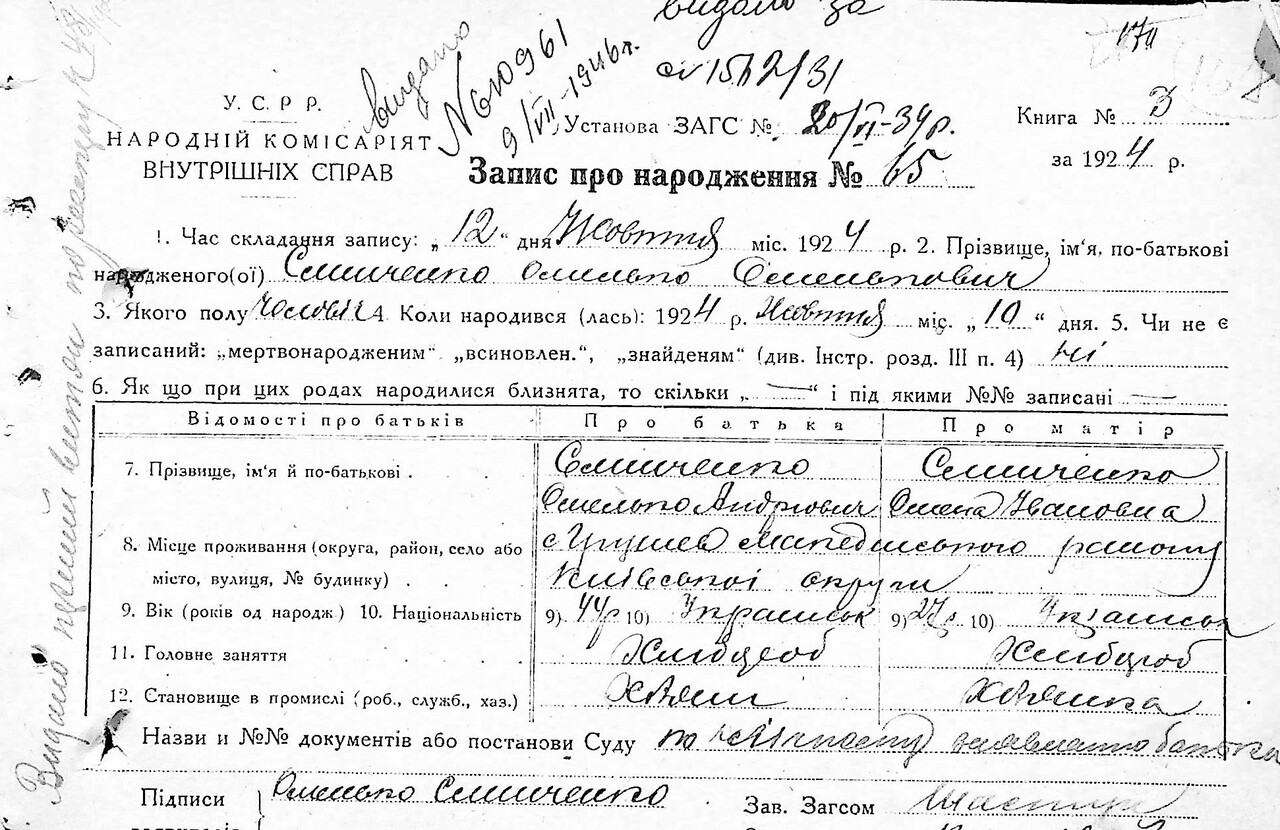 видано за
видано
N610961
9/VII-1946 г.
15h2/31
У. С. Р. Р.
НАРОДНІЙ КОМІСАРІЯТ
ВНУТРІШНІХ СПРАВ
Установа ЗАГС № 20/VI-34р.
Книга № 3
за 1924 р.
Запис про народження № 65
1. Час складання запису: „ 12 “ дня Жовтня міс. 1924 р. 2. Прізвище, ім'я, по-батькові
народженого(ої) Сличенко Омелько Омелькович
3. Якого полу чоловіч 4. Коли народився (лась): 1924 р. Жовтня міс. „ 10 “ дня. 5. Чи не є
записаний: „мертвонародженим“ „всиновлен.“, „знайденям“ (див. Інстр. розд. III п. 4) ні
6. Як що при цих родах народилися близнята, то скільки „ — “ і під якими №№ записані —
Відомості про батьків Про батька Про матір
7. Прізвище, ім'я й по-батькові . Сличенко Сличенко
Омелько Андріович Олена Ивановна
8. Місце проживання (округа, район, село або с Грушев Македонського району
місто, вулиця, № будинку) . . Київської округи
9. Вік (років од народж) 10. Національність 9) 44р 10) Українськ 9) 27р 10) Українськ
11. Головне заняття Хлібороб Хлібороб
12. Становище в промислі (роб., служб., хаз.) Хазяин Хазяйка
Назви и №№ документів або постанови Суду по заявлению батька
Підписи Омелько Сличенко Зав. Загсом
Видано